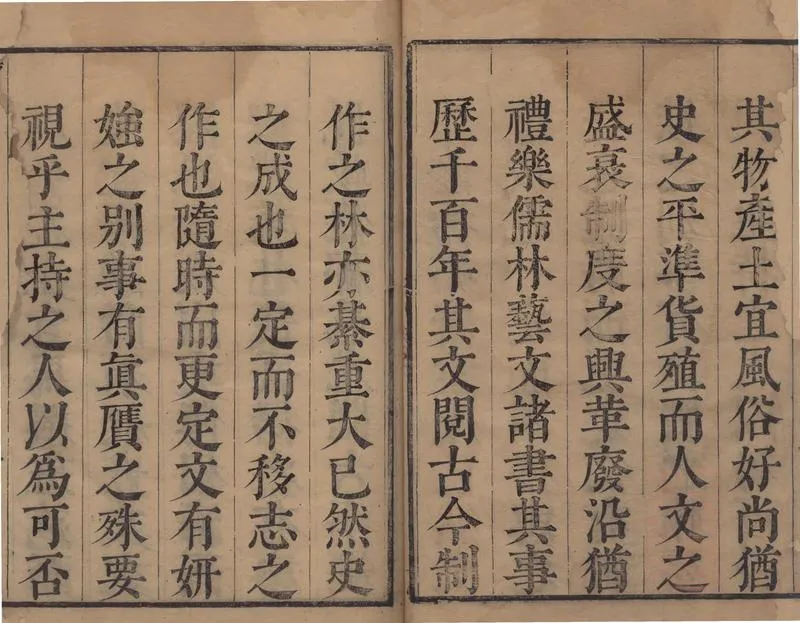 其物產土宜風俗好尚猶
史之平準貨殖而人文之
盛衰制度之興革廢沿猶
禮樂儒林藝文諸書其事
歷千百年其文閱古今制
作之林亦綦重大已然史
之成也一定而不移志之
作也隨時而更定文有妍
媸之別事有眞贋之殊要
視乎主持之人以爲可否